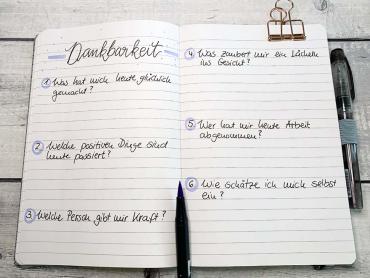 Dankbarkeit
1 Was hat mich heute glücklich
gemacht?
2 Welche positiven Dinge sind
heute passiert?
3 Welche Person gibt mir Kraft?
4 Was zaubert mir ein Lächeln
ins Gesicht?
5. Wer hat mir heute Arbeit
abgenommen?
6 Wie schätze ich mich selbst
ein?